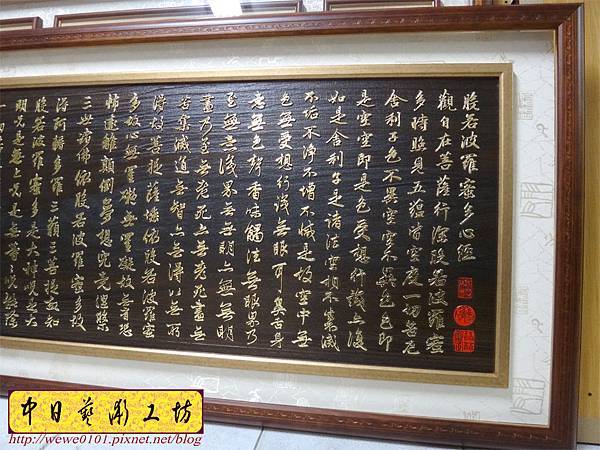 般若波羅蜜多心經
觀自在菩薩行深般若波羅蜜
多時照見五蘊皆空度一切苦厄
舍利子色不異空空不異色色即
是空空即是色受想行識亦復
如是舍利子是諸法空相不生不滅
不垢不淨不增不減是故空中無
色無受想行識無眼耳鼻舌身
意無色聲香味觸法無眼界乃
至無意識界無無明亦無無明
盡乃至無老死亦無老死盡無
苦集滅道無智亦無得以無所
得故菩提薩埵依般若波羅蜜
多故心無罣礙無罣礙故無有恐
怖遠離顛倒夢想究竟涅槃
三世諸佛依般若波羅蜜多故
得阿耨多羅三藐三菩提故知
般若波羅蜜多是大神咒是大
明咒是無上咒是無等等咒能除
中日藝術工坊
http://wewe0101.pixnet.net/blog